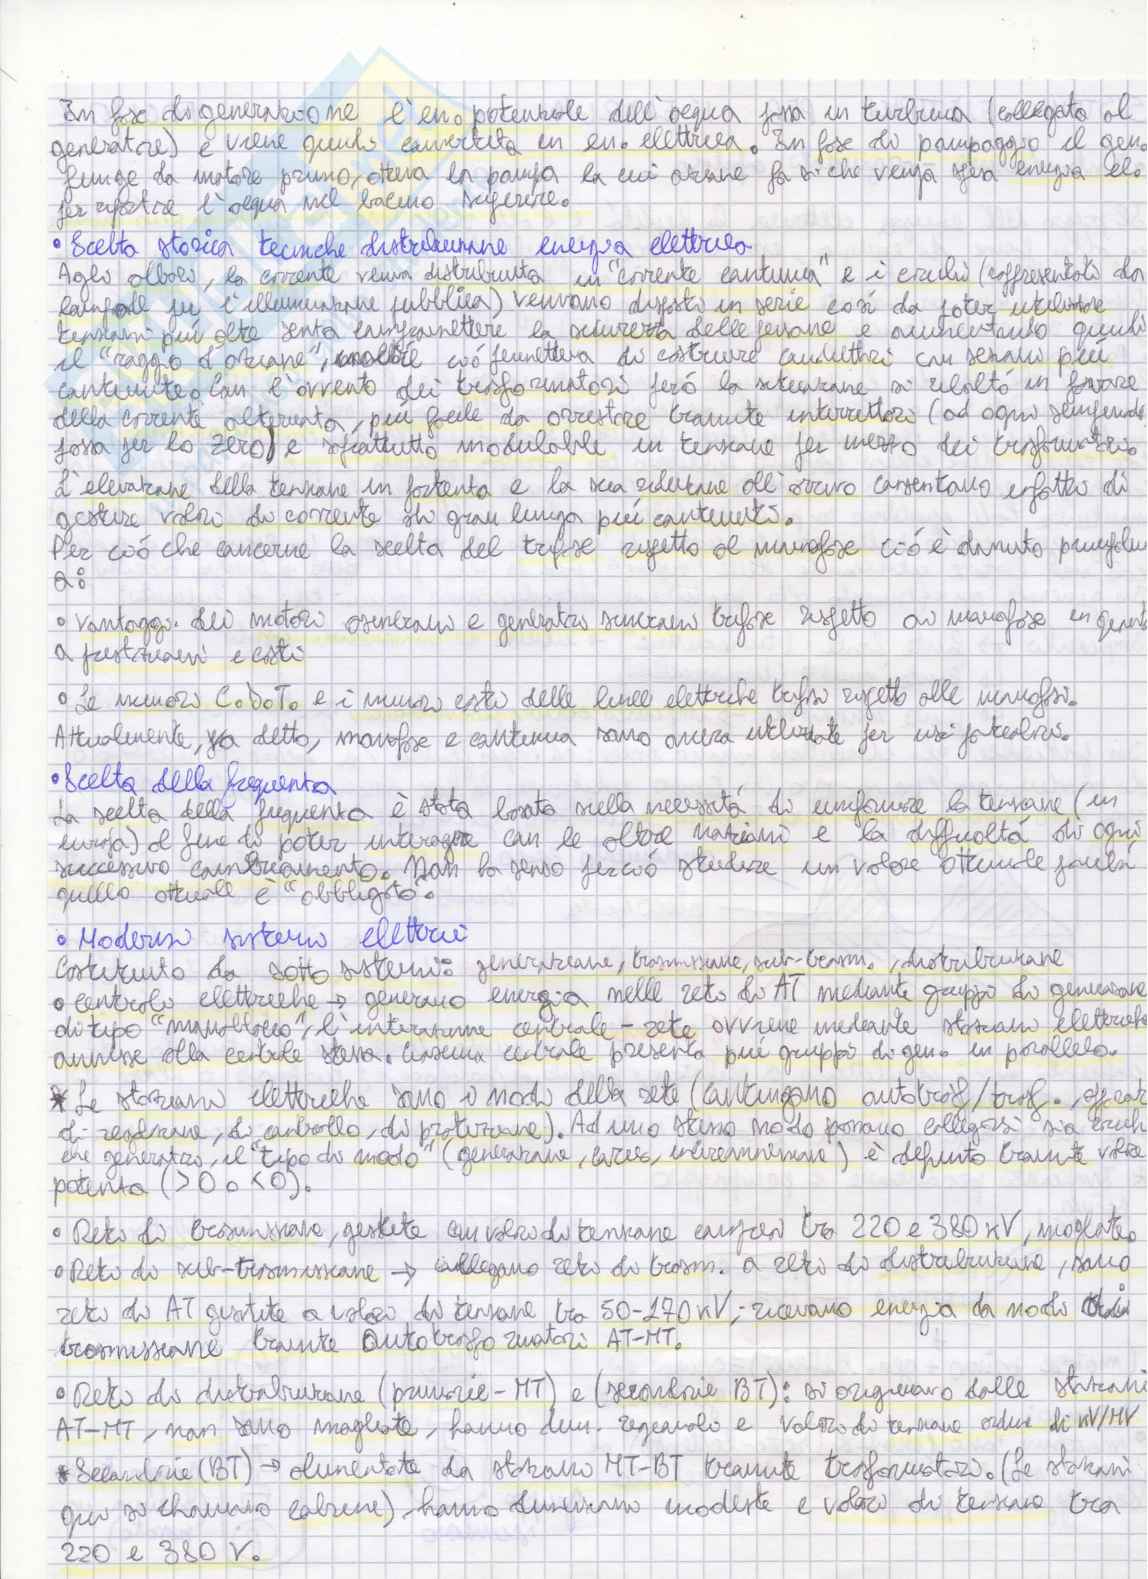 In fase di generazione l'en. potenziale dell'acqua passa in turbina (collegata al
generatore) e viene quindi convertita in en. elettrica. In fase di pompaggio il gen.
funge da motore primo, attiva la pompa la cui azione fa sì che venga spesa energia el.
per riportare l'acqua nel bacino superiore.
• Scelta storica tecniche distribuzione energia elettrica
Agli albori, la corrente veniva distribuita in "corrente continua" e i carichi (rappresentati da
lampade per l'illuminazione pubblica) venivano disposti in serie così da poter utilizzare
tensioni più alte senza compromettere la sicurezza delle persone e aumentando quindi
il "raggio d'azione", inoltre ciò permetteva di costruire conduttori con sezioni più
contenute. Con l'avvento dei trasformatori però la situazione si ribaltò in favore
della corrente alternata, più facile da arrestare tramite interruttori (ad ogni semiperiodo
passa per lo zero) e soprattutto modulabile in tensione per mezzo dei trasformatori.
L'elevazione della tensione in partenza e la sua riduzione all'arrivo consentono infatti di
gestire valori di corrente di gran lunga più contenuti.
Per ciò che concerne la scelta del trifase rispetto al monofase ciò è dovuto
a:
• vantaggi dei motori asincroni e generatori sincroni trifase rispetto ai monofase in
a prestazioni e costi
• Le minori C.D.T. e i minori costi delle linee elettriche trifasi rispetto alle monofasi.
Attualmente, già detto, monofase e continua sono ancora utilizzate per usi particolari.
• Scelta della frequenza
La scelta della frequenza è stata basata sulla necessità di uniformare la tensione (in
europa) al fine di poter interagire con le altre nazioni e la difficoltà di ogni
successivo cambiamento. Non ha senso perciò studiare un valore ottimale poiché
quello attuale è "obbligato".
• Moderni sistemi elettrici
Costituito da sotto sistemi: generazione, trasmissione, sub-trasm., distribuzione
• centrali elettriche → generano energia nelle reti di AT mediante gruppi di generazione
di tipo "monoblocco", l'interazione centrale - rete avviene mediante stazioni elettriche
annesse alla centrale stessa. Ciascuna centrale presenta più gruppi di gen. in parallelo.
* Le stazioni elettriche sono i nodi della rete (contengono autotrasf/trasf.,
di regolazione, di controllo, di protezione). Ad uno stesso nodo possono collegarsi sia carichi
che generatori, il "tipo di nodo" (generazione, carico, interconnessione) è definito tramite valore
potenza (>0 o <0).
• Reti di trasmissione, gestite con valori di tensione compresi tra 220 e 380 kV, magliate.
• Reti di sub-trasmissione → collegano reti di trasm. a reti di distribuzione, sono
reti di AT gestite a valori di tensione tra 50-170 kV; ricevono energia da nodi di
trasmissione tramite autotrasformatori AT-MT.
• Reti di distribuzione (primarie - MT) e (secondarie BT): si originano dalle stazioni
AT-MT, non sono magliate, hanno dim. regionali e valori di tensione ordine di kV/MV
* Secondarie (BT) → alimentate da stazioni MT-BT tramite trasformatori. (Le stazioni
qui si chiamano cabine), hanno dimensioni modeste e valori di tensione tra
220 e 380 V.